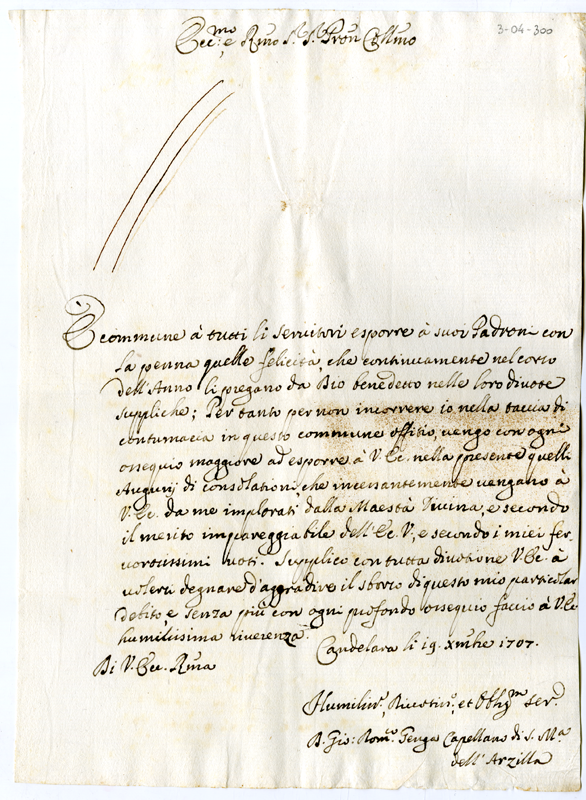 Ecc:mo e Rmo Sr. Sr. Pron Collmo
3-04-300
È commune à tutti li servitori esporre à suoi Padroni con
la penna quelle felicità, che continuamente nel corso
dell'Anno li pregano da Dio benedetto nelle loro divote
suppliche; Per tanto per non incorrere io nella taccia di
contumacia in questo commune offitio, vengo con ogni
ossequio maggiore ad esporre à V. Ec. nella presente quelli
Augurij di consolationi, che incessantemente vengano à
V. Ec. da me implorati dalla Maestà Divina, e secondo
il merito impareggiabile dell'Ec. V., e secondo i miei fer
vorosissimi voti. Supplico con tutta divotione V. Ec. à
volersi degnare d'aggradire il sborso di questo mio particolar
debito, e senza più con ogni profondo ossequio faccio à V. Ec.
humilissima riverenza.
Candelara li 19. Xmbre 1707.
Di V. Ecc. Rma
Humiliss.o, Divotiss.o, et Obblig.m Ser.
D. Gio: Rom.co Genga Capellano di S. Ma
dell'Arzilla